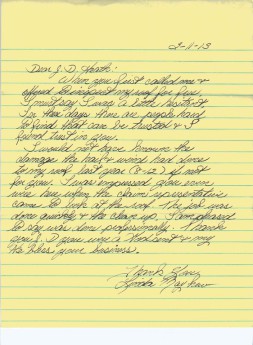 2-1-13
Dear J. D. Heath:
When you first called me &
offered to inspect my roof for free,
I must say I was a little hesitant.
For these days there are people hard
to find that can be trusted & I
found trust in you.
I would not have known the
damage the hail & wind had done
to my roof last year (8-12) if not
for you. I was impressed you even
were here when the claim representative
came to look at the roof. The job was
done quickly & the clean up, I am pleased
to say was done professionally. Thank
you J. D. you were a Godsent & may
He bless your business.
Thank You,
Lynda